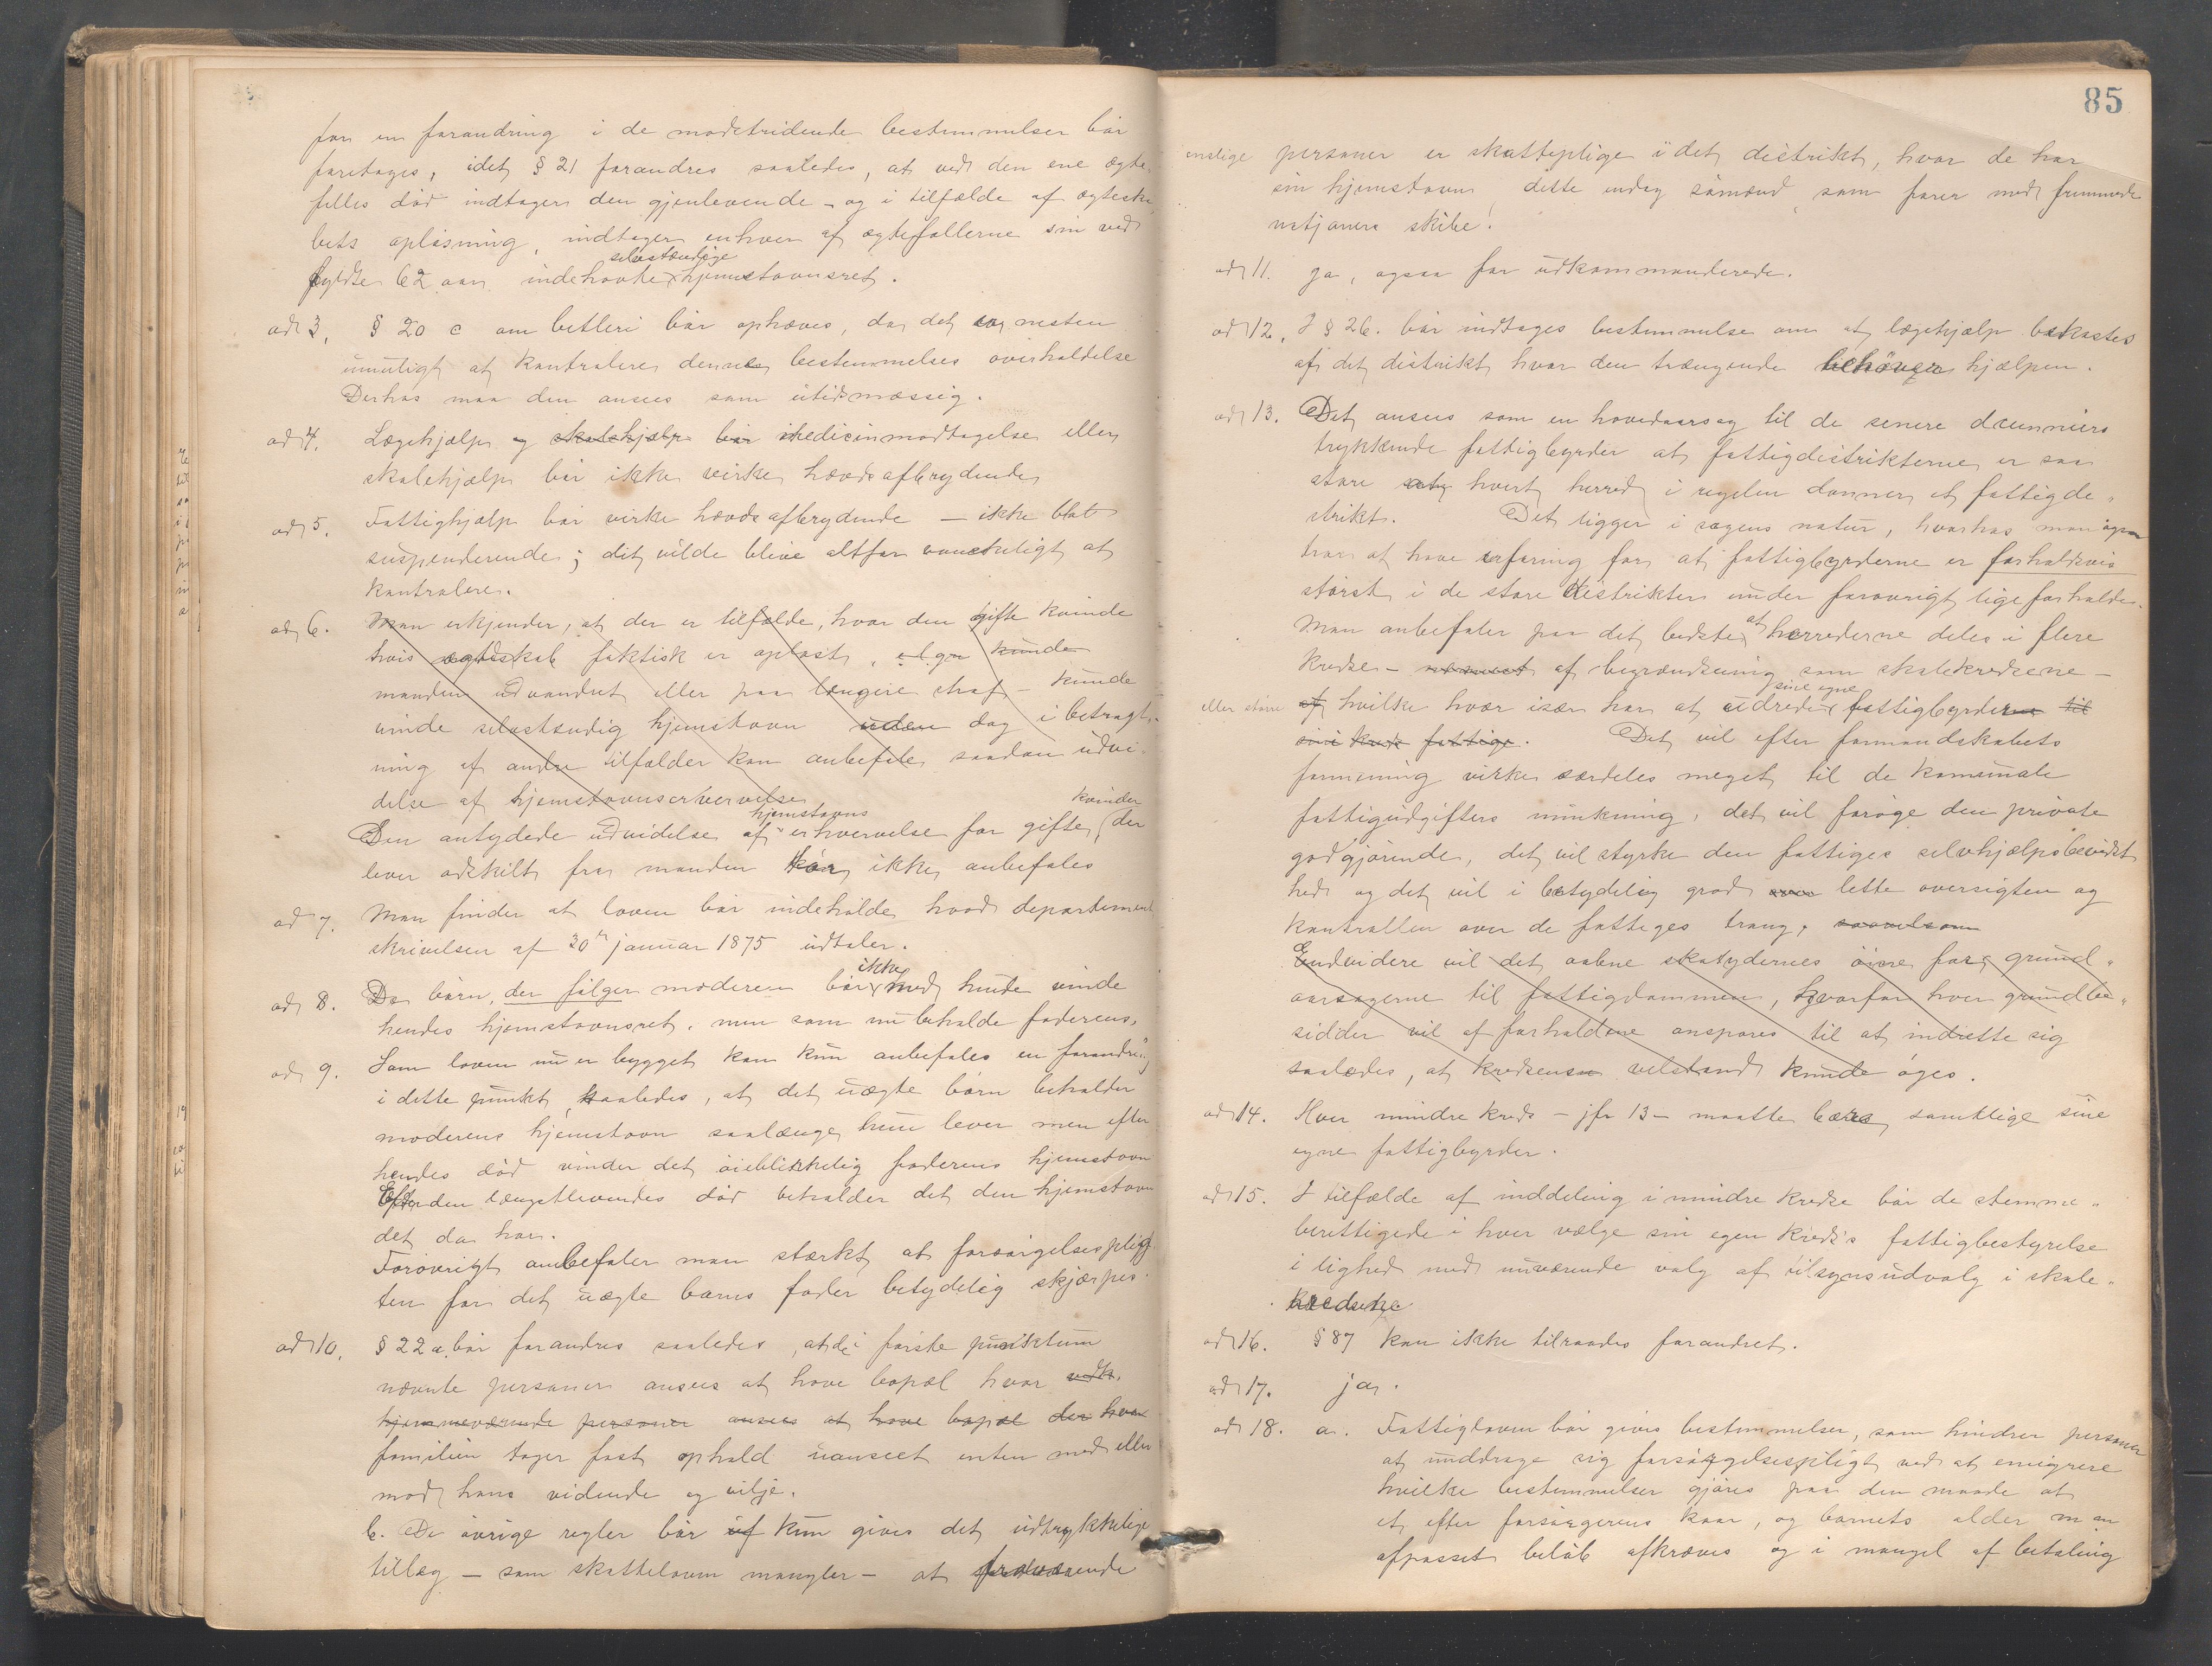 for en forandring i de modstridende bestemmelser bør
foretages, idet § 21 forandres saaledes, at ved den ene ægte-
felles død indtager den gjenlevende – og i tilfælde af ægteska-
bets opløsning, indtager enhver af ægtefællerne sin ved
selvstændige
fyldte 62 aar indehavte hjemstavnsret.
ad 3, § 20 c om betleri bør ophæves, da det er nesten
umuligt at kontrolere denne bestemmelses overholdelse
Derhos maa den ansees som utidsmæssig.
ad 4. Lægehjælp og skolehjælp bør medicinmodtagelse eller
skolehjælp bør ikke virke hævdsafbrydende
ad 5. Fattighjælp bør virke hævdsafbrydende – ikke blot
suspenderende; det vilde blive altfor vanskeligt at
kontrolere.
ad 6. Man erkjender, at der er tilfælde, hvor den gifte kvinde
hvis ægteskab faktisk er opløst, kunde
manden udvandret eller paa længere straf – kunde
vinde selvstændig hjemstavn uden dog i betragt-
ning af andre tilfælder kan anbefale saadan udvi-
delse af hjemstavnserhvervelse
hjemstavns kvinder
Den antydede udvidelse af erhvervelse for gifte, der
lever adskilt fra manden bør ikke anbefales
ad 7. Man finder at loven bør indeholde hvad departements
skrivelsen af 30te januar 1875 udtaler.
ikke
ad 8. De børn, der følger moderen bør med hende vinde
hendes hjemstavnsret, men som nu beholde faderens,
ad 9. Som loven nu er bygget kan kun anbefales en forandring
i dette punkt, saaledes, at det uægte børn beholder
moderens hjemstavn saalænge hun lever men efter
hendes død vinder det øieblikkelig faderens hjemstavn
Efter den længstlevendes død beholder det den hjemstavn
det da har.
Forøvrigt anbefaler man stærkt at forsørgelsesplig-
ten for det uægte barns fader betydelig skjærpes.
ad 10. § 22 a bør forandres saaledes, at de i første punktum
nævnte personer ansees at have bopæl hvor
hjemmeværende personer ansees at have bopæl der hvor
familien tager fast ophold uanseet enten med eller
mod hans vidende og vilje.
b. De øvrige regler bør kun gives det udtrykkelige
tillæg – som skatteloven mangler – at fraværende
85
enslige personer er skattepligtige i det distrikt, hvor de har
sin hjemstavn, dette endog sømænd, som farer med fremmede
natjoners skibe.
ad 11. ja, ogsaa for udkommanderede.
ad 12. I § 26. bør indtages bestemmelse om at lægehjælp bekostes
af det distrikt hvor den trængende behøver hjælpen.
ad 13. Det ansees som en hovedaarsag til de senere decenniers
trykkende fattigbyrder at fattigdistrikterne er saa
store at hvert herred i regelen danner et fattigdi-
strikt. Det ligger i sagens natur, hvorhos man ogsaa
tror at have erfaring for at fattigbyrderne er forholdsvis
størst i de store distrikter under forøvrigt lige forholde.
at
Man anbefaler paa det bedste herrederne deles i flere
kredse – af begrændsning som skolekredsene –
sine egne
eller større af hvilke hver især har at udrede fattigbyrderne til
sine kreds fattige. Det vil efter formandskabets
formening virke særdeles meget til de komunale
fattigudgifters minkning, det vil forøge den private
godgjørende, det vil styrke den fattiges selvhjælpsbevidst
hed og det vil i betydelig grad lette oversigten og
kontrollen over de fattiges trang, saavelsom
Endvidere vil det aabne skatydernes øine for grund-
aarsagerne til fattigdommen, hvorfor hver grundbe-
sidder vil af forholdene anspores til at indrette sig
saaledes, at kredsens velstand kunde øges.
ad 14. Hver mindre kreds – jfr 13 – maatte bære samtlige sine
egne fattigbyrder.
ad 15. I tilfælde af inddeling i mindre kredse bør de stemme-
berettigede i hver vælge sin egen kreds's fattigbestyrelse
i lighed med nuværende valg af tilsynsudvalg i skole-
kredsene
ad 16. § 87 kan ikke tilraades forandret.
ad 17. ja.
ad 18. a. Fattigloven bør gives bestemmelser, som hindrer personer
at unddrage sig forsørgelsespligt ved at emigrere
hvilke bestemmelser gjøres paa den maade at
et efter forsørgerens kaar, og barnets alder m an
afpasset beløb afkræves og i mangel af betaling